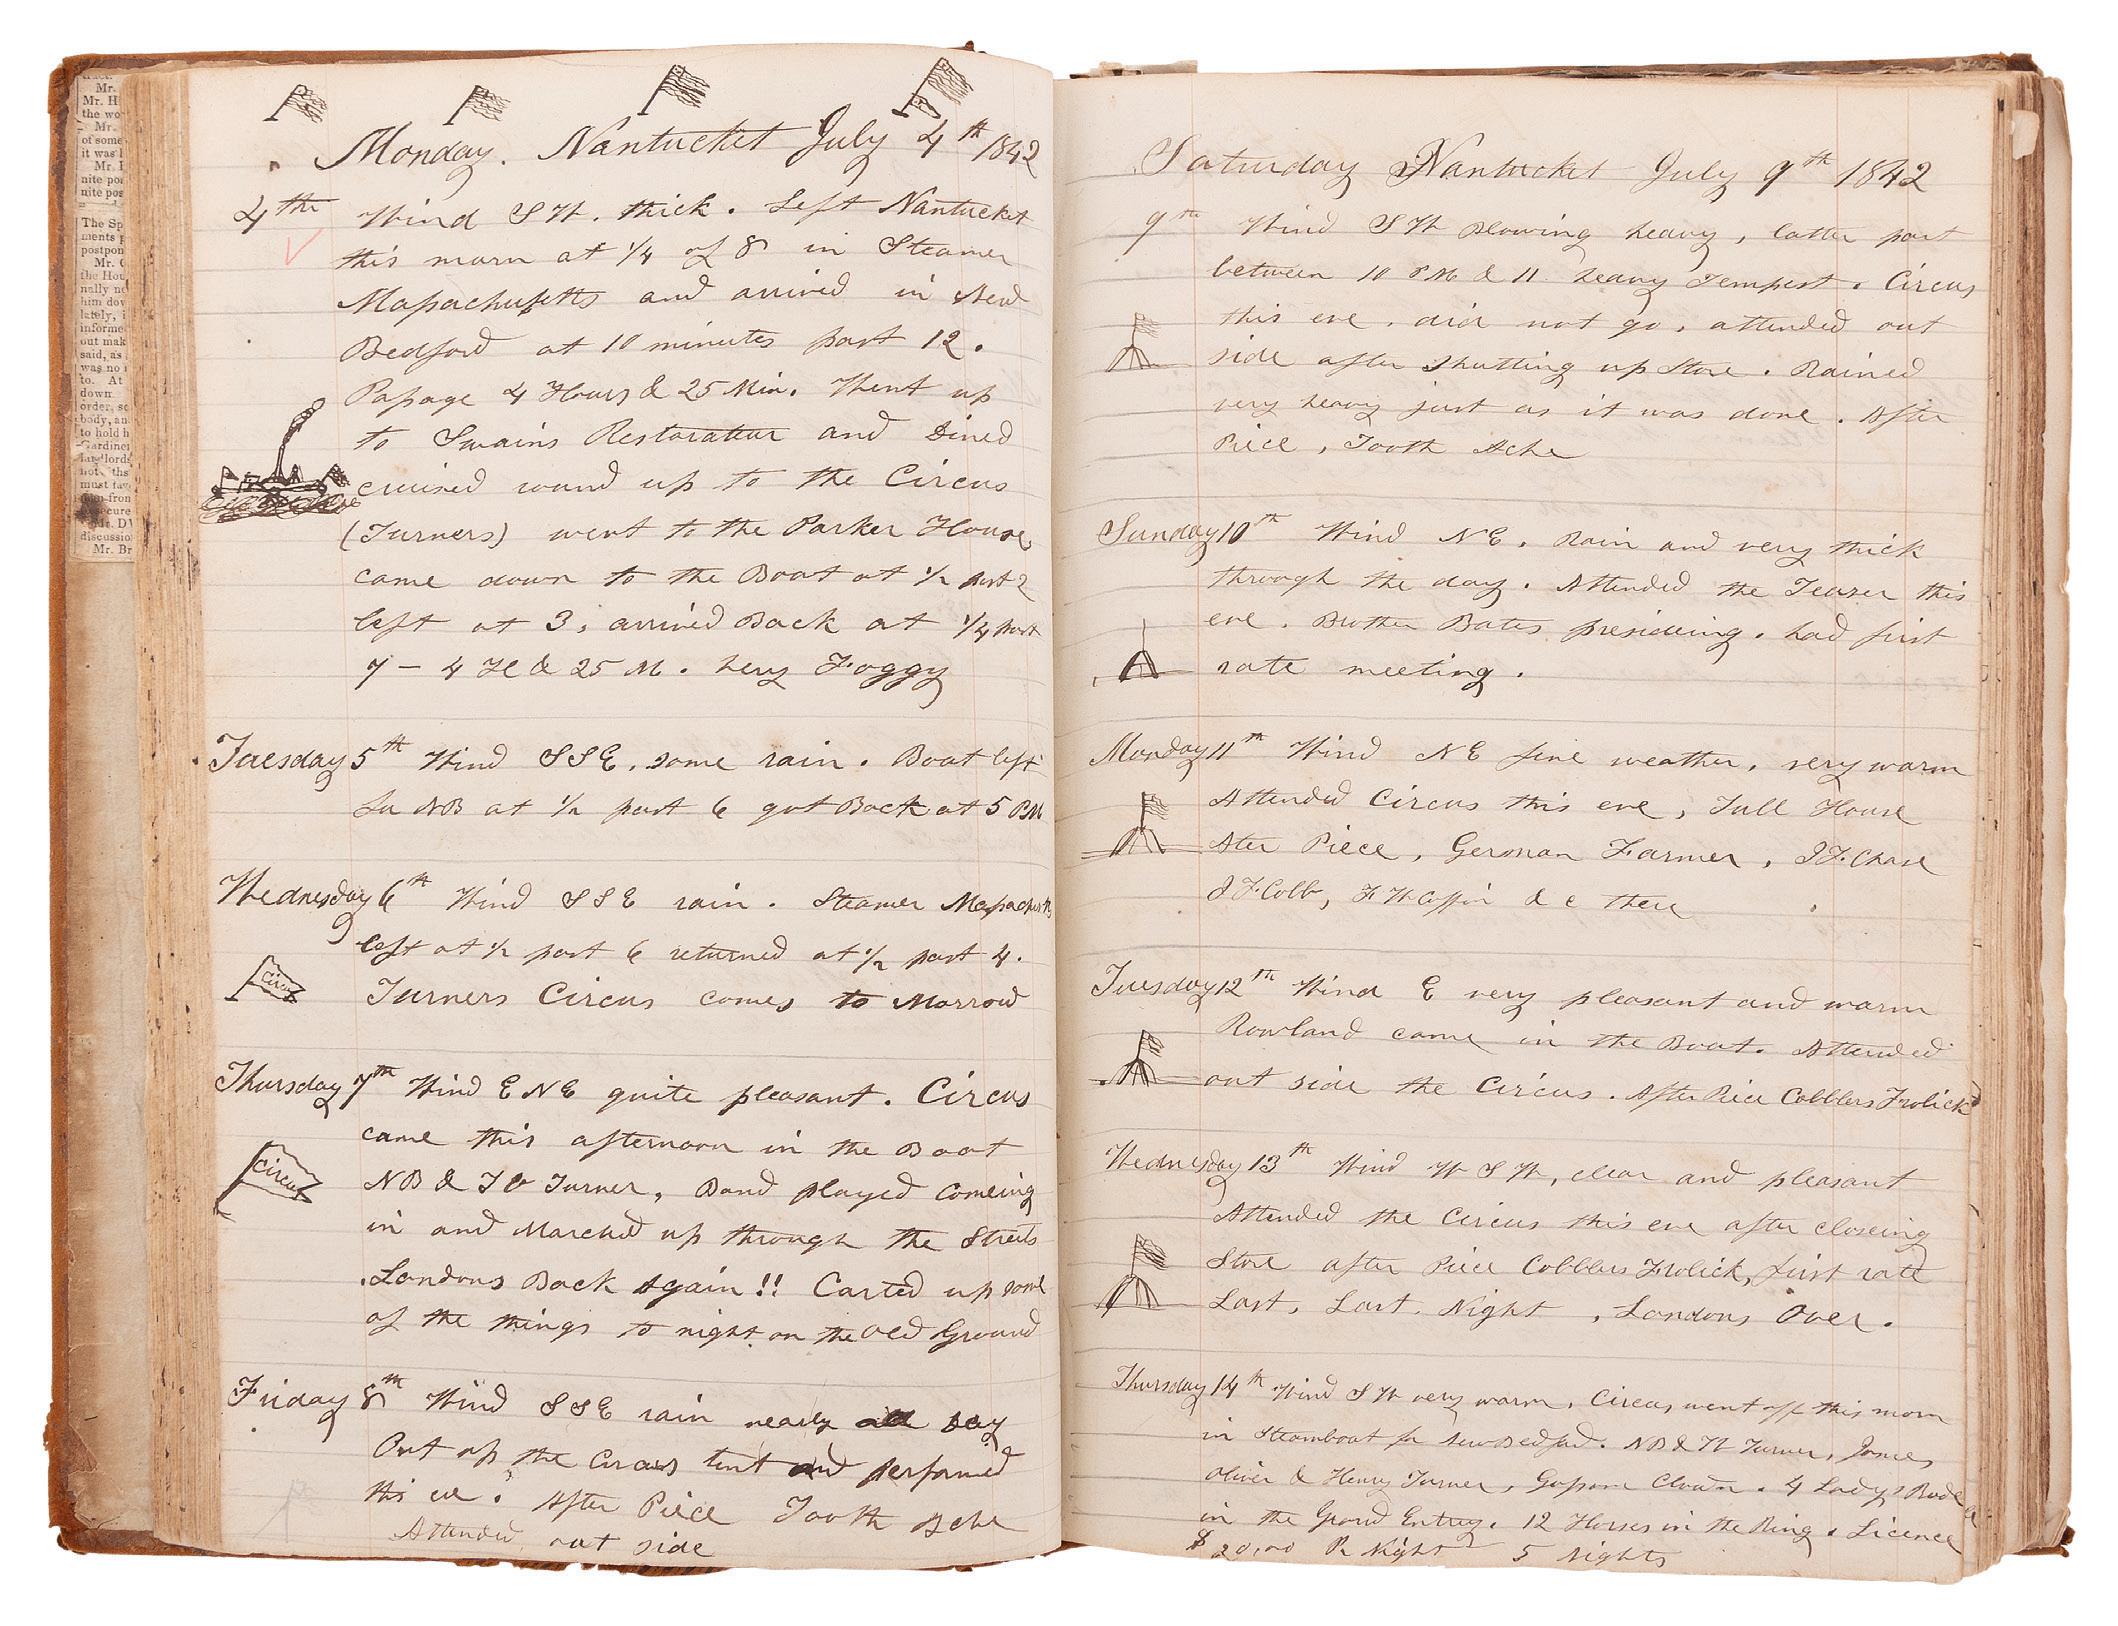 Mr.
Mr. H
the wo
Mr.
of some
it was
Mr.
nite po
nite pos
The Sp
ments p
postpon
Mr. C
the Hou
nally ne
him dov
lately, i
informe
out mak
said, as
was no
to. At
down
order, sc
body, an
to hold h
Gardiner
landlords
not, tha
must tav
from
secure
Mr. DV
discussio
Mr. Br
Monday. Nantucket July 4th 1842
4th Wind S W. thick. Left Nantucket
this morn at 1/4 of 8 in Steamer
Massachusetts and arrived in New
Bedford at 10 minutes past 12.
Passage 4 Hours & 25 Min. Went up
to Swains Restorateur and Dined
cruised round up to the Circus
(Turners) went to the Parker House,
came down to the Boat at 1/2 past 2
left at 3, arrived Back at 1/4 past
7 - 4 H & 25 M. very Foggy
Tuesday 5th Wind S S E, some rain. Boat left
for NB at 1/2 past 6 got Back at 5 PM
Wednesday 6th Wind S S E rain. Steamer Massachusetts
left at 1/2 past 6 returned at 1/2 past 4.
Circus
Turners Circus comes to Morrow
Thursday 7th Wind E N E quite pleasant. Circus
came this afternoon in the Boat
Circus
N B & T V Turner, Band played comeing
in and Marched up through the Streets
Londons Back Again!! Carted up some
of the things to night on the Old Ground
Friday 8th Wind S S E rain nearly all Day
Put up the Circus tent and performed
this eve. After Piece Tooth Ache
Attended out side
Saturday Nantucket July 9th 1842
9th Wind S W blowing heavy, latter part
between 10 PM & 11 heavy Tempest. Circus
this eve. did not go, attended out
side after Shutting up Store. Rained
very heavy just as it was done. After
Piece, Tooth Ache
Sunday 10th Wind N E. Rain and very thick
through the day. Attended the Teazer this
eve. Brother Bates presideing. had first
rate meeting.
Monday 11th Wind N E fine weather, very warm
Attended Circus this eve, Full House
Ater Piece, German Farmer, J F Chase
J F Cobb, F W Coffin & c there
Tuesday 12th Wind E very pleasant and warm
Rowland came in the Boat. Attended
out side the Circus. After Piece Cobblers Frolick
Wednesday 13th Wind W S W, clear and pleasant
Attended the Circus this eve after closeing
Store after Piece Cobblers Frolick, first rate
Last, Last. Night, Londons Over.
Thursday 14th Wind S W very warm, Circus went off this morn
in Steamboat for New Bedford. N B & Turner, James
Oliver & Henry Turner, Gossom Clown. 4 Ladys Rode
in the Grand Entrey. 12 Horses in the Ring. Licence
$ 20,00 Pr Night 5 Nights